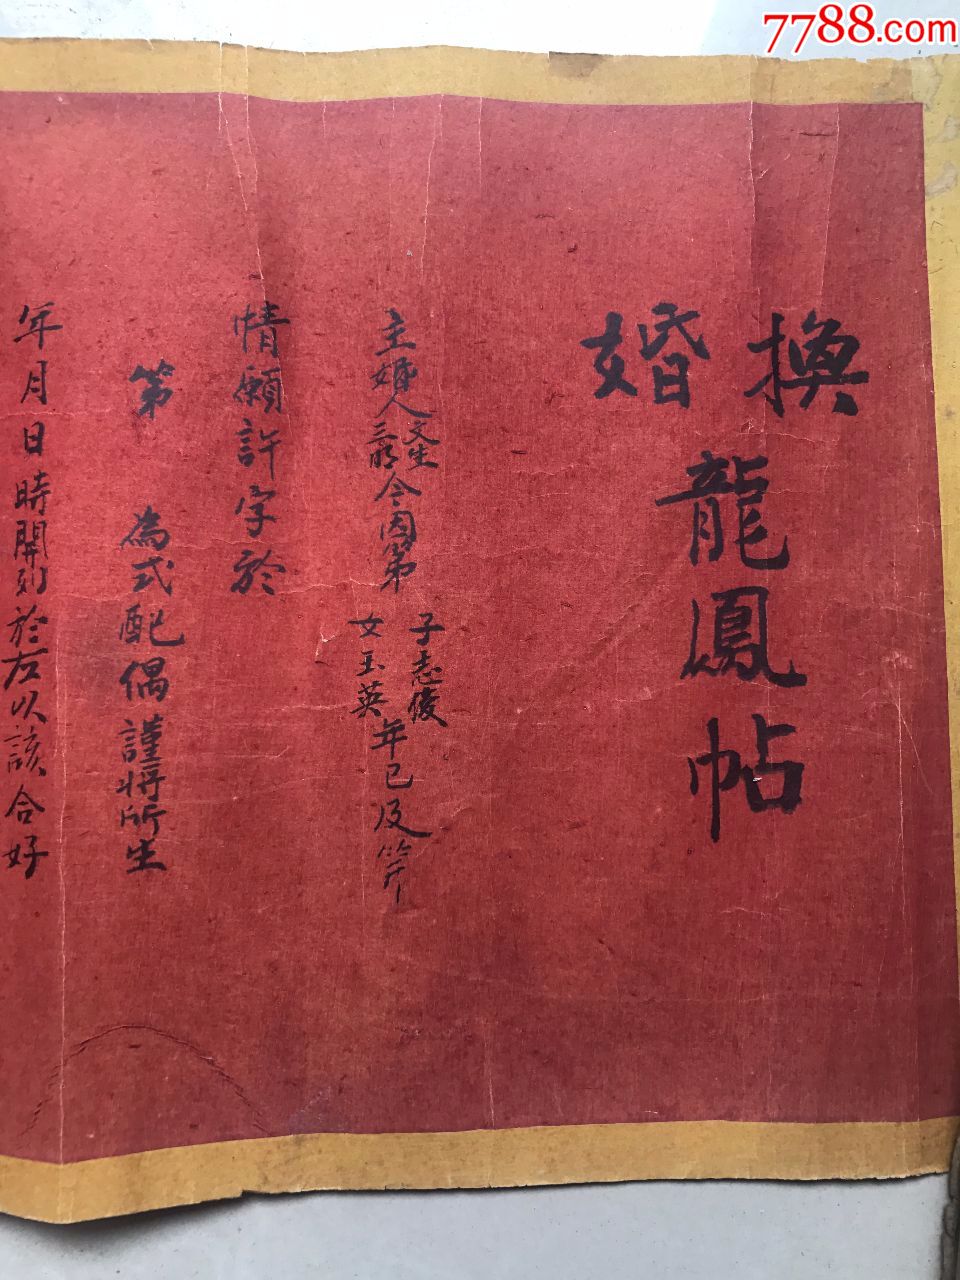 7788.com
換婚
龍鳳帖
主婚人文生三郎今因第子志俊女玉英年已及笄
情願許字於
第 為式配偶謹將所生
年月日時開列於左以該合好